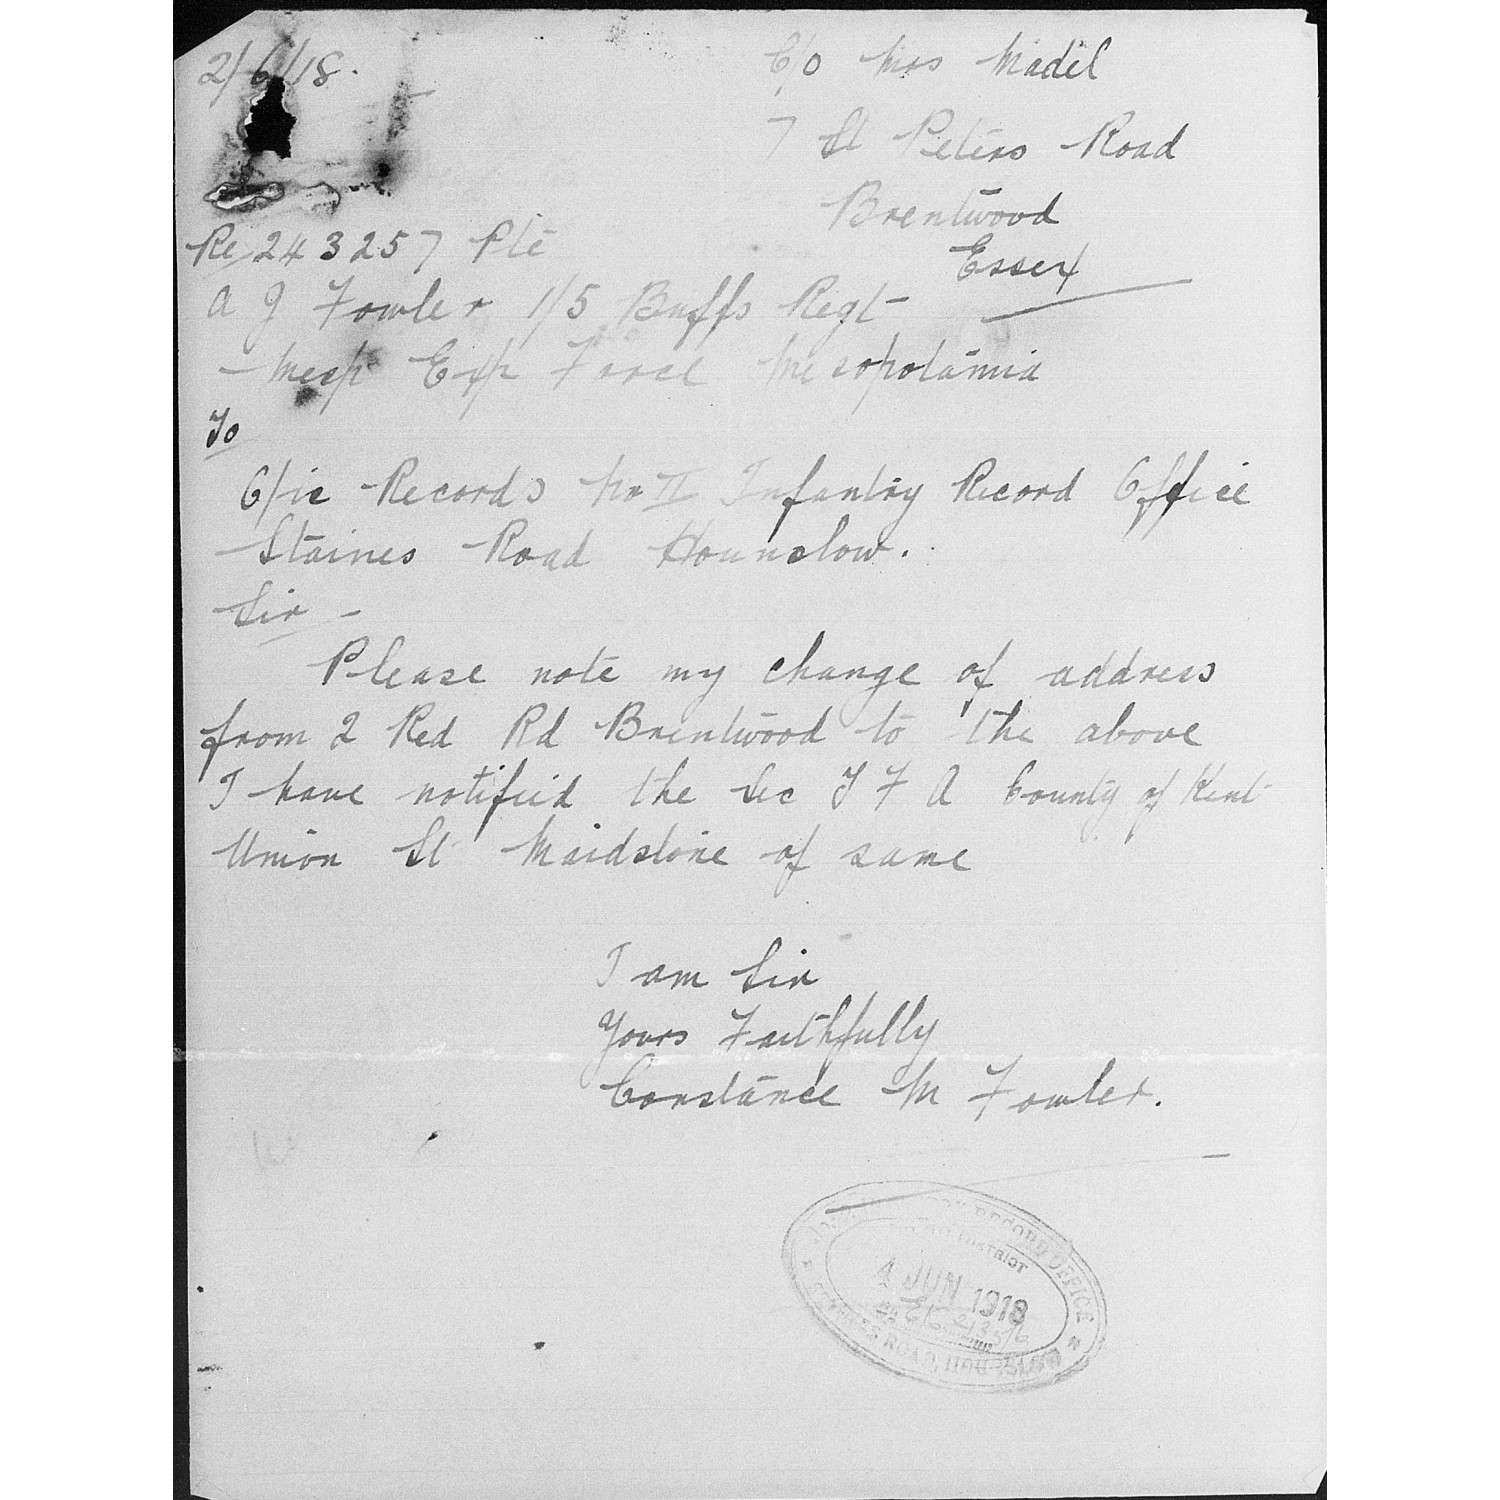 2/6/18.
C/o Mrs Madel
7 St Peters Road
Brentwood
Essex
Re 243257 Pte
A J Fowler 1/5 Buffs Regt
Mesp Exp Force Mesopotamia
To
O/ic Records No II Infantry Record Office
Staines Road Hounslow.
Sir -
Please note my change of address
from 2 Red Rd Brentwood to the above
I have notified the Sec T F A County of Kent
Union St Maidstone of same
I am Sir
Yours Faithfully
Constance M Fowler.
RECORD OFFICE
DISTRICT
4 JUN 1918
STAINES ROAD, HOUNSLOW